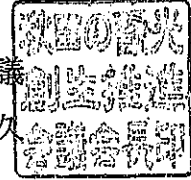 議
久
秋田の火
創生推進
会議会長印